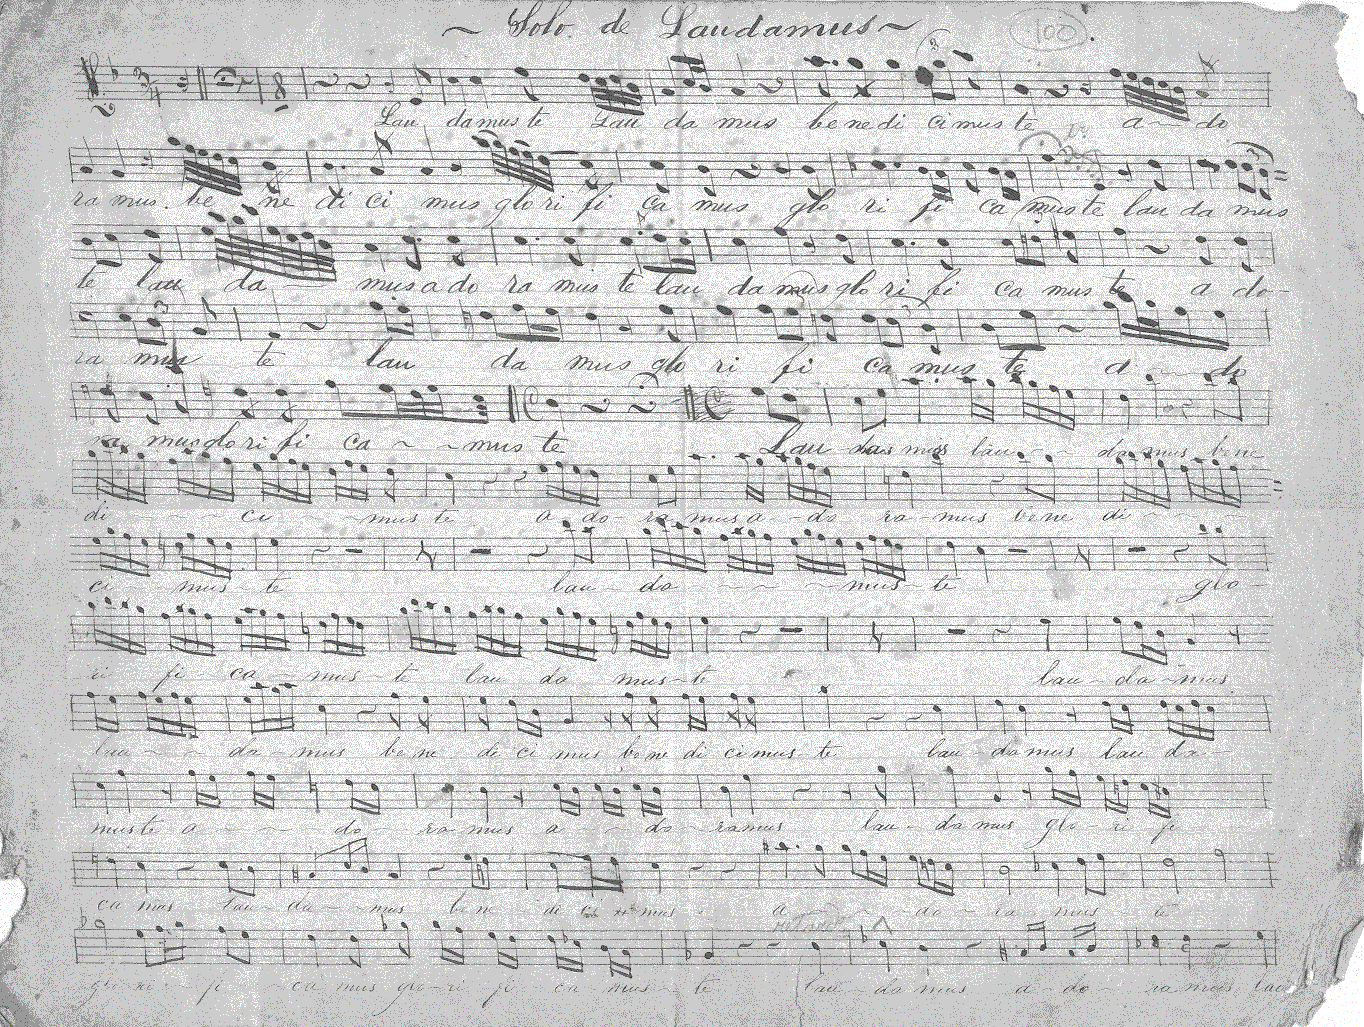 ~ Solo. de Laudamus ~ 100.
Lau damus te Lau da mus benedi cimus te a - do
ra mus. be ne di ci mus glo ri fi ca mus glo ri fi ca mus te lau da mus
te lau da - mus a do ra mus te lau da mus glo ri fi ca mus te a do -
ra mus te lau da mus glo ri fi ca mus te a - do
ra mus glo ri fi ca ~ - mus te Lau da mus lau - - da mus bene
di - - - ci - - mus te a - do - ra - mus a - - do ra - mus bene di - -
ci - mus te lau - da - - - mus - te glo -
ri fi - ca - mus - te lau da mus - te lau - da - mus
lau - - - da - mus bene di ci mus bene di ci mus - te lau - da mus lau da -
mus te a - - - do - ra mus a - - do - ramus lau - da mus glo - ri fi
ca mus lau - da - - mus bene - di ci mus a - - - do - ra - mus - te
glo - ri - fi - ca mus glo - ri fi ca - mus - te lau - da mus a - do - ra mus lau